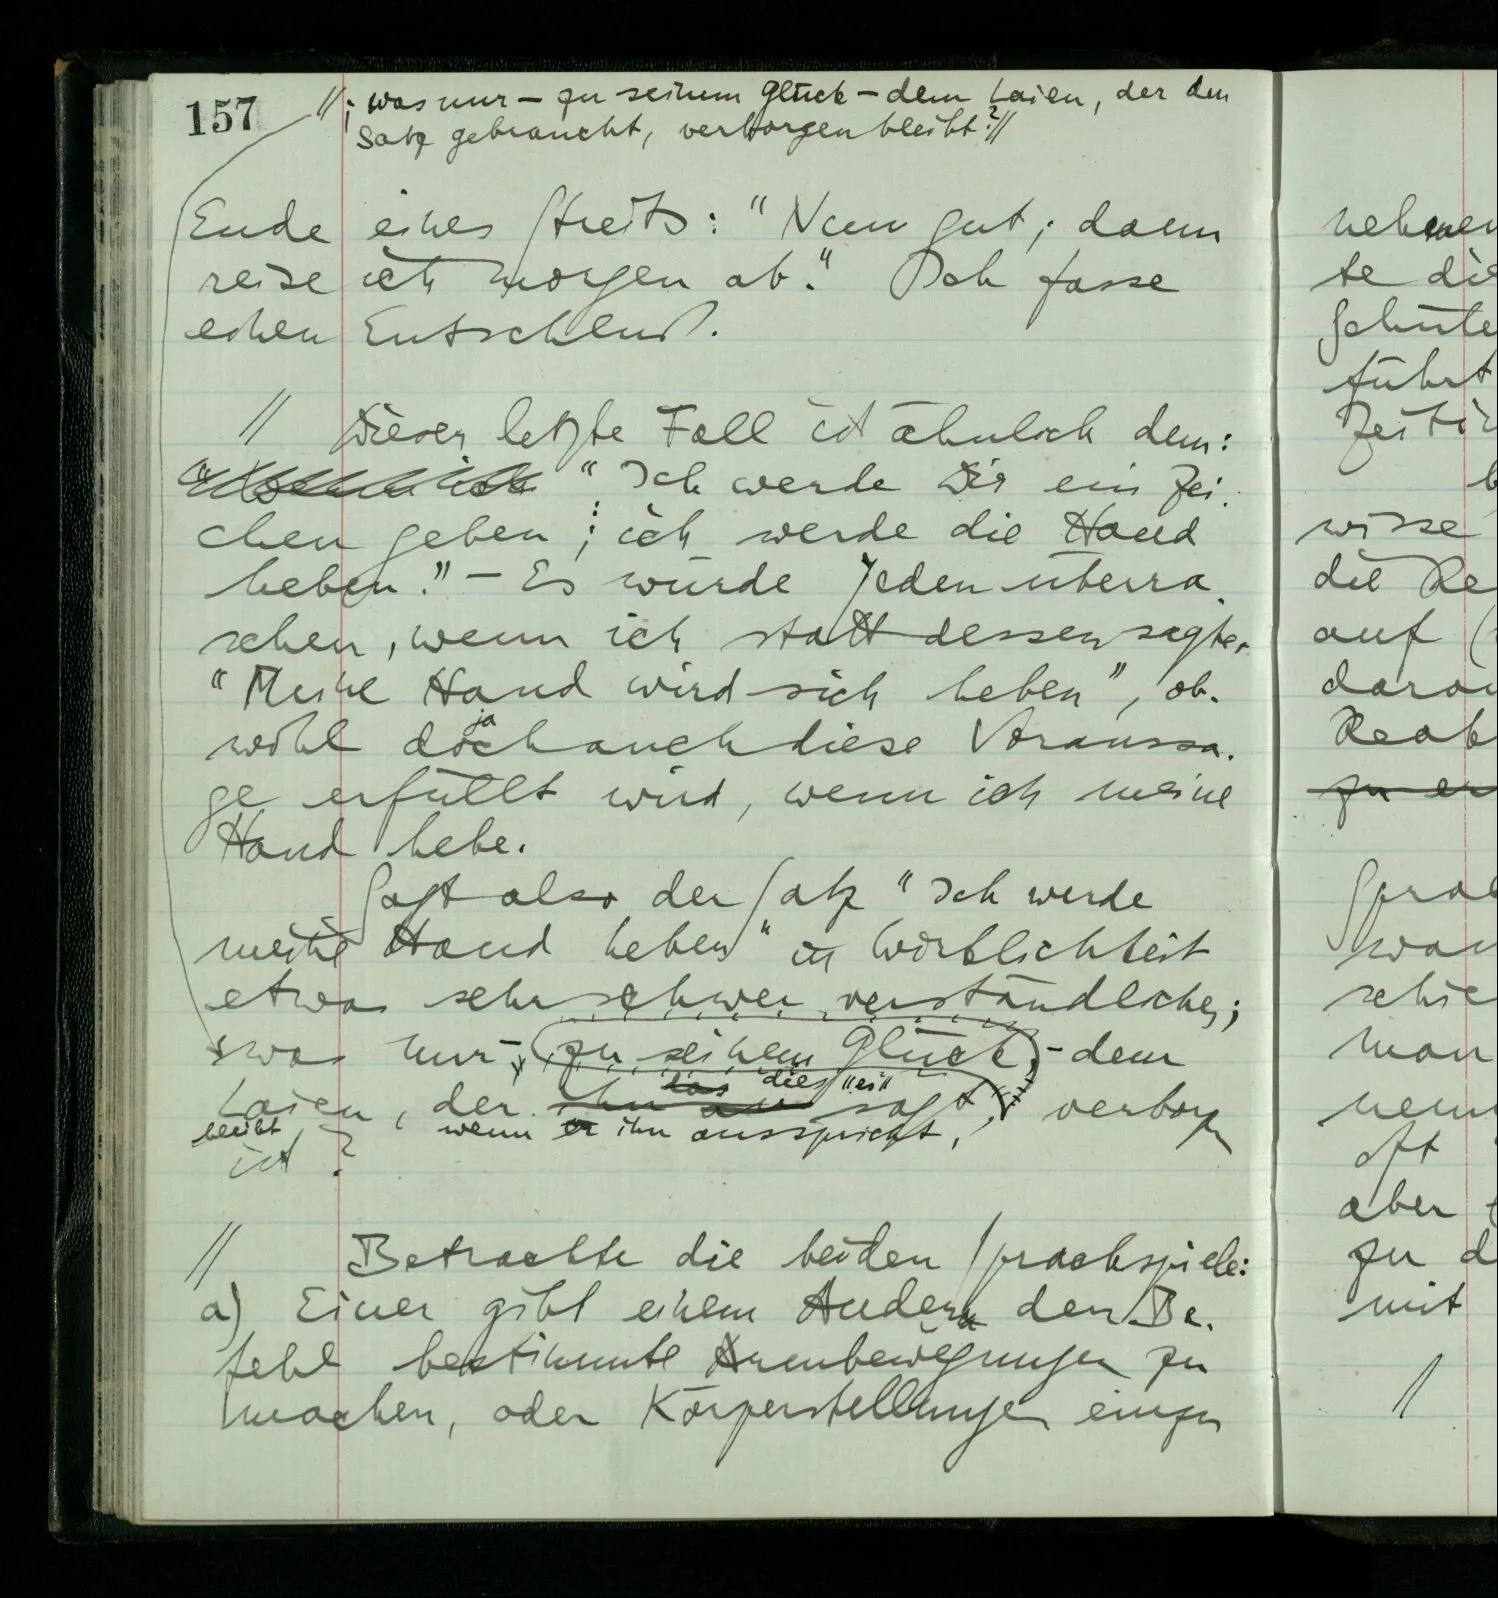 157
//; was nur – zu seinem Glück – dem Laien, der den
Satz gebraucht, verborgen bleibt?//
Ende eines Streits: "Nun gut; dann
reise ich morgen ab." Ich fasse
einen Entschluß.
// Dieser letzte Fall ist ähnlich dem:
"Ich werde Dir ein Zei-
chen geben; ich werde die Hand
heben." – Es würde Jeden überra-
schen, wenn ich statt dessen sagte:
"Meine Hand wird sich heben", ob-
ja
wohl doch auch diese Voraussa-
ge erfüllt wird, wenn ich meine
Hand hebe.
Sagt also der Satz "Ich werde
meine Hand heben" in Wirklichkeit
etwas sehr schwer verständliches;
was nur – (zu seinem Glück) – dem
das dies "ei"
Laien, der ihn sagt, verborgen
bleibt wenn er ihn ausspricht,
ist?
// Betrachte die beiden Sprachspiele:
a) Einer gibt einem Andern den Be-
fehl bestimmte Armbewegungen zu
machen, oder Körperstellungen einzu
nehmen
te die
führt
wisse
die Re
auf (
zu er
schie
man
oft
aber
zu d
mit
/